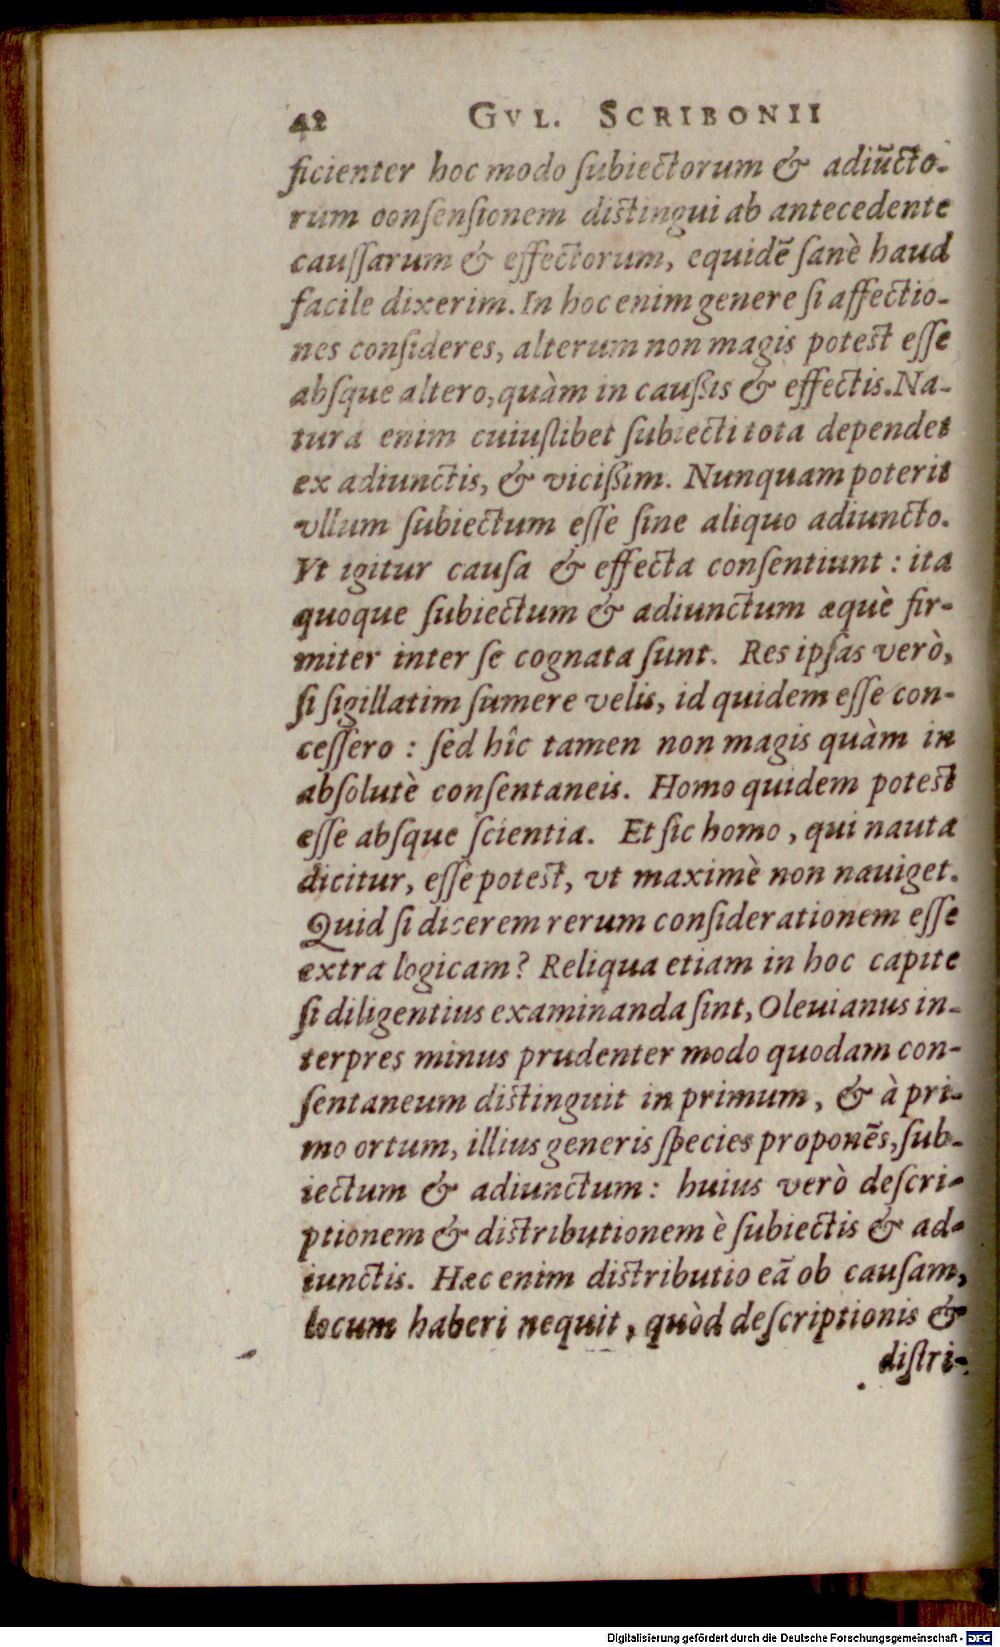 42 GVL. SCRIBONII
ficienter hoc modo ſubiectorum & adiũcto-
rum conſenſionem distingui ab antecedente
cauſſarum & effectorum, equidẽ ſanè haud
facile dixerim. In hoc enim genere ſi affectio-
nes conſideres, alterum non magis potest eſſe
abſque altero, quàm in caußis & effectis. Na-
tura enim cuiuſlibet ſubiecti tota dependet
ex adiunctis, & vicißim. Nunquam poterit
vllum ſubiectum eſſe ſine aliquo adiuncto.
Vt igitur cauſa & effecta conſentiunt : ita
quoque ſubiectum & adiunctum æquè fir-
miter inter ſe cognata ſunt. Res ipſas verò,
ſi ſigillatim ſumere velis, id quidem eſſe con-
ceſſero : ſed hîc tamen non magis quàm in
abſolutè conſentaneis. Homo quidem potest
eſſe abſque ſcientia. Et ſic homo, qui nauta
dicitur, eſſe potest, vt maximè non nauiget.
Quid ſi dicerem rerum conſiderationem eſſe
extra logicam? Reliqua etiam in hoc capite
ſi diligentius examinanda ſint, Oleuianus in-
terpres minus prudenter modo quodam con-
ſentaneum distinguit in primum, & à pri-
mo ortum, illius generis ſpecies proponẽs, ſub-
iectum & adiunctum : huius verò deſcri-
ptionem & distributionem è ſubiectis & ad-
iunctis. Hæc enim distributio eã ob cauſam,
locum haberi nequit, quòd deſcriptionis &
diſtri-
Digitalisierung gefördert durch die Deutsche Forschungsgemeinschaft - DFG